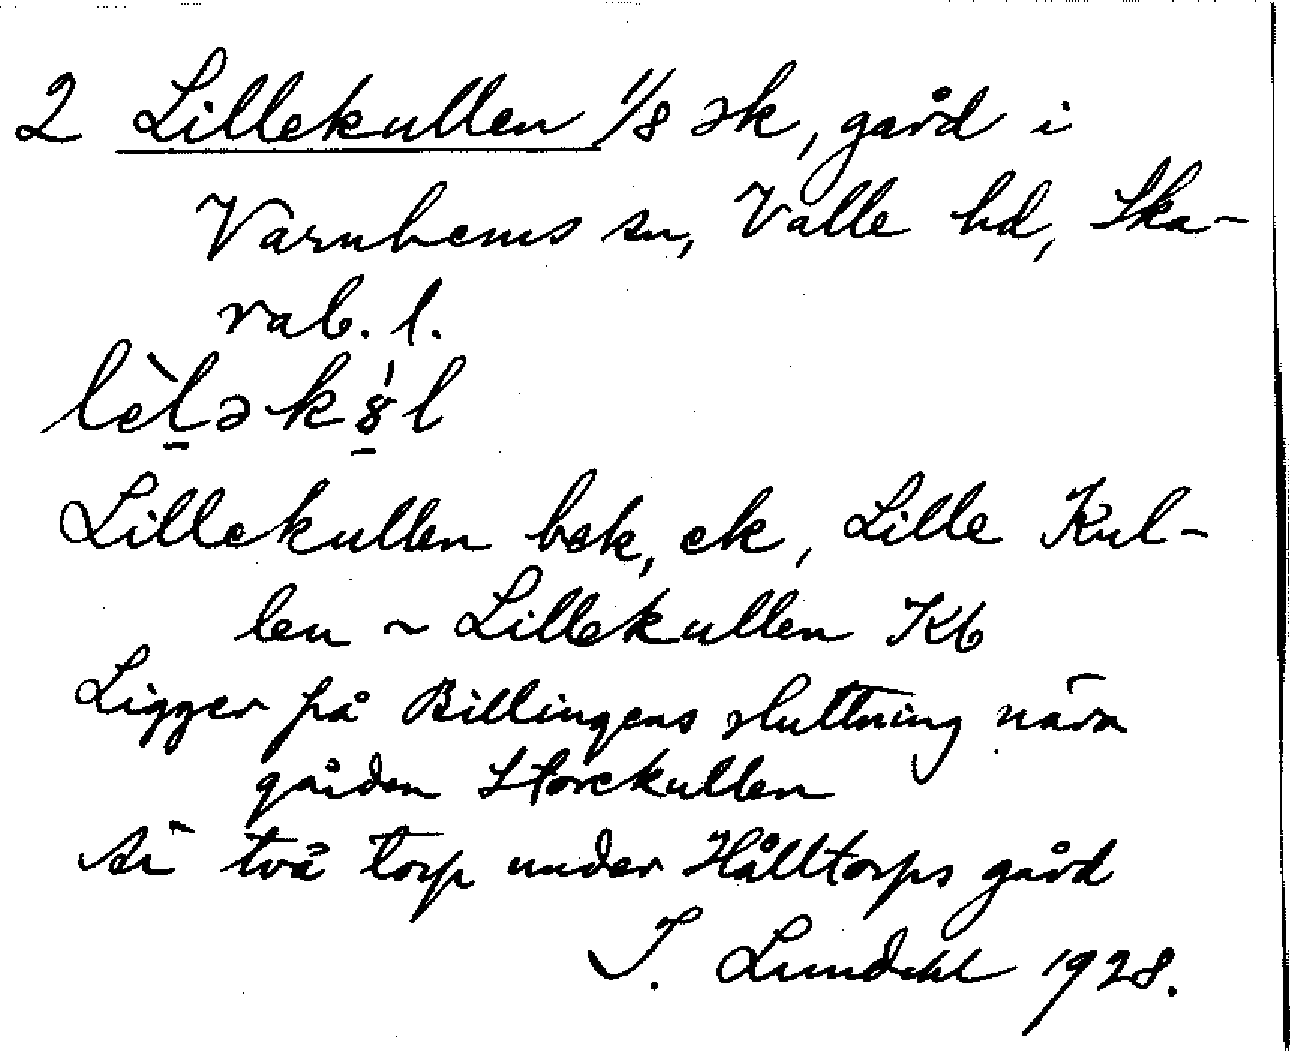 2 Lillekullen 1/8 sk, gård i
Varnhems sn, Valle hd, Ska-
rab. l.
lèləkȣ̀l
Lillekullen bek, ek, Lille Kul-
len ~ Lillekullen Kb
Ligger på Billingens sluttning nära
gården Storekullen
Är två torp under Hålltorps gård
I. Lundahl 1928.